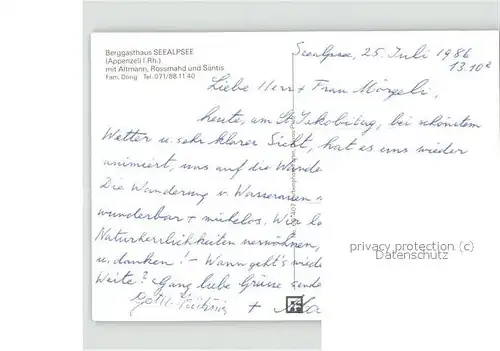 Berggasthaus SEEALPSEE
(Appenzell I.Rh.)
mit Altmann, Rossmahd und Säntis
Fam. Dörig Tel. 071/88 11 40
Seealpsee, 25. Juli 1986
13.10ʰ
Liebe Herr + Frau Mörgeli,
heute, am St. Jakobitag, bei schönstem
Wetter u. sehr klarer Sicht, hat es uns wieder
animiert, uns auf die Wande
Die Wanderung v. Wasserauen
wunderbar + mühelos. Wir
Naturherrlichkeiten
u. danken! – Wann geht's wiede
Weite? Ganz liebe Grüsse sende
+
privacy protection (c)
Datenschutz